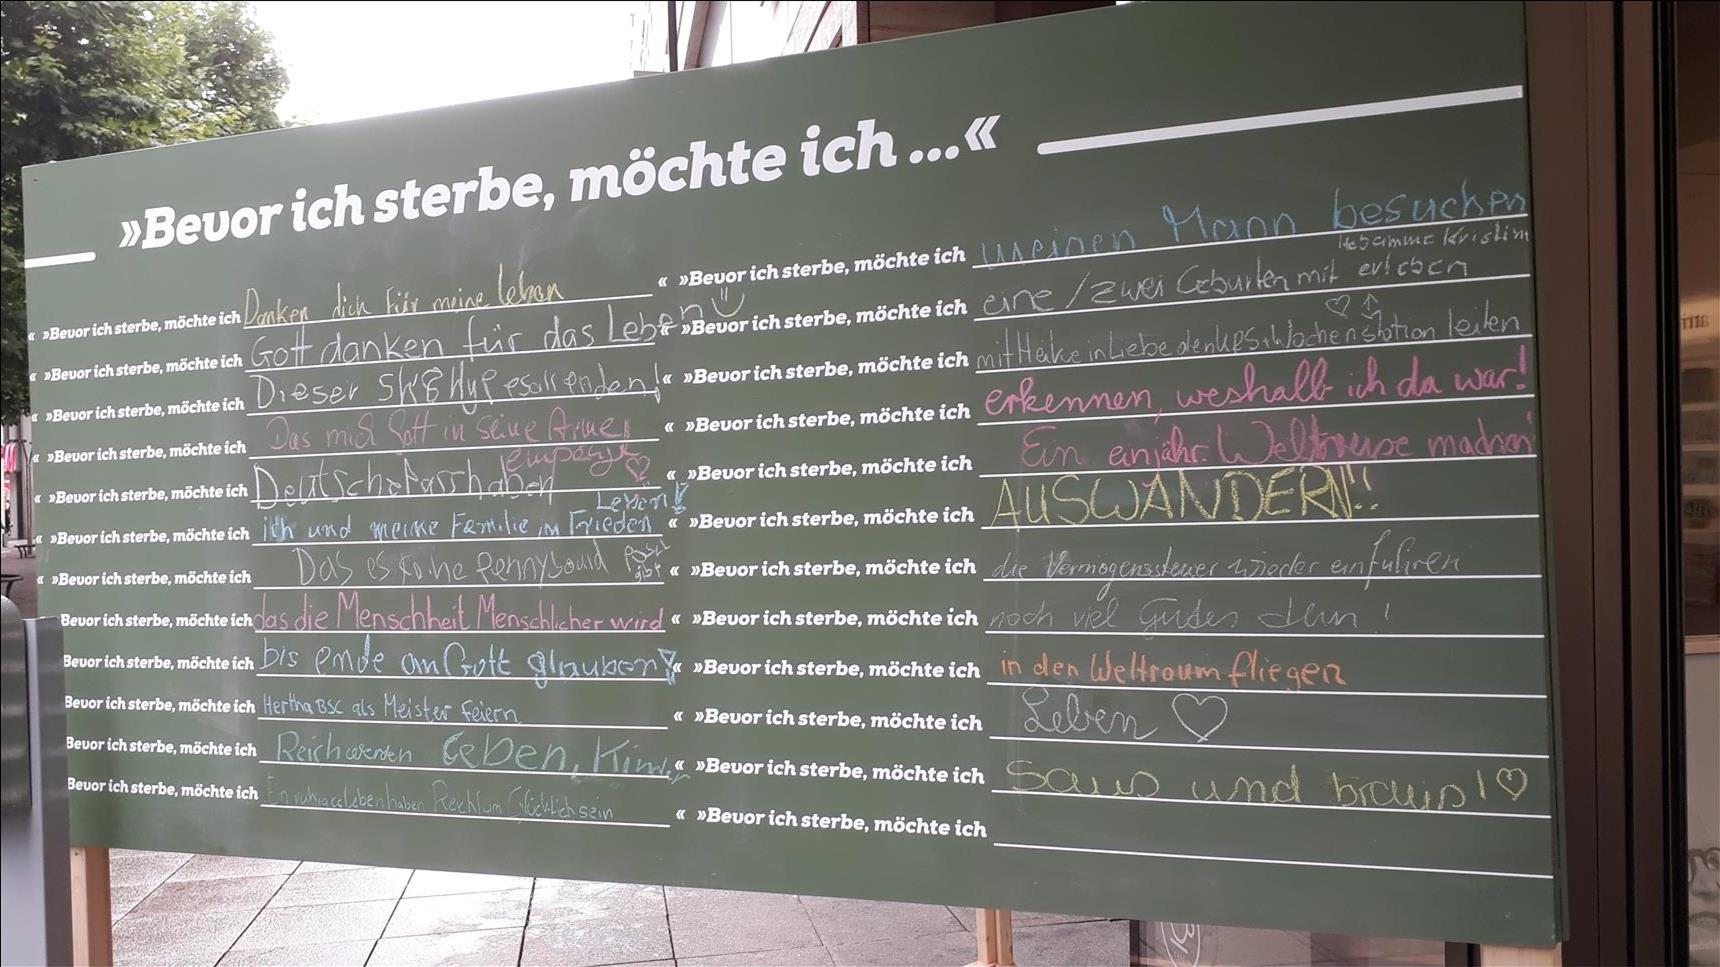 »Bevor ich sterbe, möchte ich ...«
»Bevor ich sterbe, möchte ich Danken dich für meine leben «
»Bevor ich sterbe, möchte ich Gott danken für das Leben «
»Bevor ich sterbe, möchte ich Dieser «
»Bevor ich sterbe, möchte ich Das mich Gott in seine Arme empfängt ♡ «
»Bevor ich sterbe, möchte ich Deutsche Pass haben «
»Bevor ich sterbe, möchte ich ich und meine Familie in Frieden Leben! «
»Bevor ich sterbe, möchte ich Das es keine gibt «
Bevor ich sterbe, möchte ich das die Menschheit Menschlicher wird «
Bevor ich sterbe, möchte ich bis ende an Gott glauben! «
Bevor ich sterbe, möchte ich Hertha BSC als Meister feiern «
Bevor ich sterbe, möchte ich Reich werden Leben, «
Bevor ich sterbe, möchte ich Ein leben haben Reichtum Glücklich sein «
»Bevor ich sterbe, möchte ich meinen Mann besuchen
»Bevor ich sterbe, möchte ich eine / zwei Geburten mit Hebamme Kristin erleben
»Bevor ich sterbe, möchte ich mit Heike in Liebe den Wochenstation leiten
»Bevor ich sterbe, möchte ich erkennen, weshalb ich da war!
»Bevor ich sterbe, möchte ich Ein einjähr. Weltreise machen
»Bevor ich sterbe, möchte ich AUSWANDERN!!!
»Bevor ich sterbe, möchte ich die Vermögenssteuer wieder einführen
»Bevor ich sterbe, möchte ich noch viel Gutes !
»Bevor ich sterbe, möchte ich in den Weltraum fliegen
»Bevor ich sterbe, möchte ich Leben ♡
»Bevor ich sterbe, möchte ich Saus und braus! ♡
»Bevor ich sterbe, möchte ich